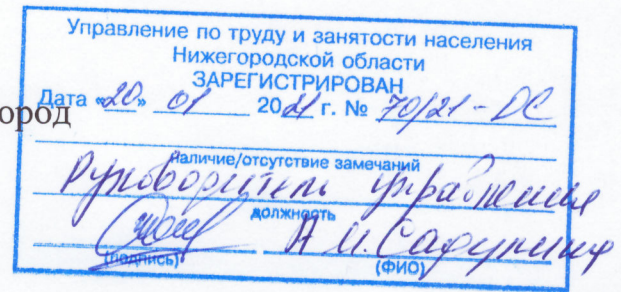 Управление по труду и занятости населения
Нижегородской области
ЗАРЕГИСТРИРОВАН
Дата «20» 01 2021 г. № 70/21-ДС
ород
наличие/отсутствие замечаний
Руководитель управления
должность
А.И. 
(подпись) (ФИО)